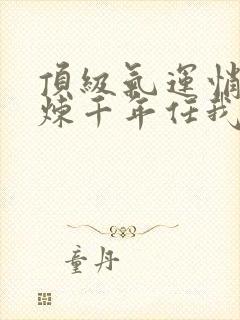 頂級氣運悄
煉千年任我
童丹